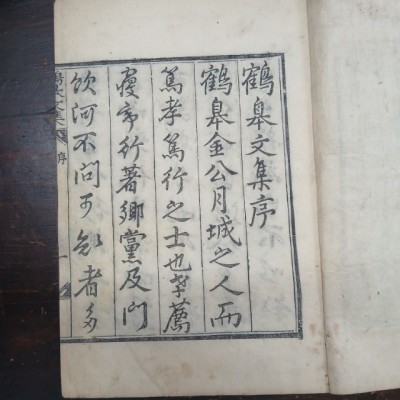 鶴皐文集序
鶴皐金公月城之人而
篤孝篤行之士也孝薦
行著鄕黨及門
飮河不問可知者多
文集
序
一